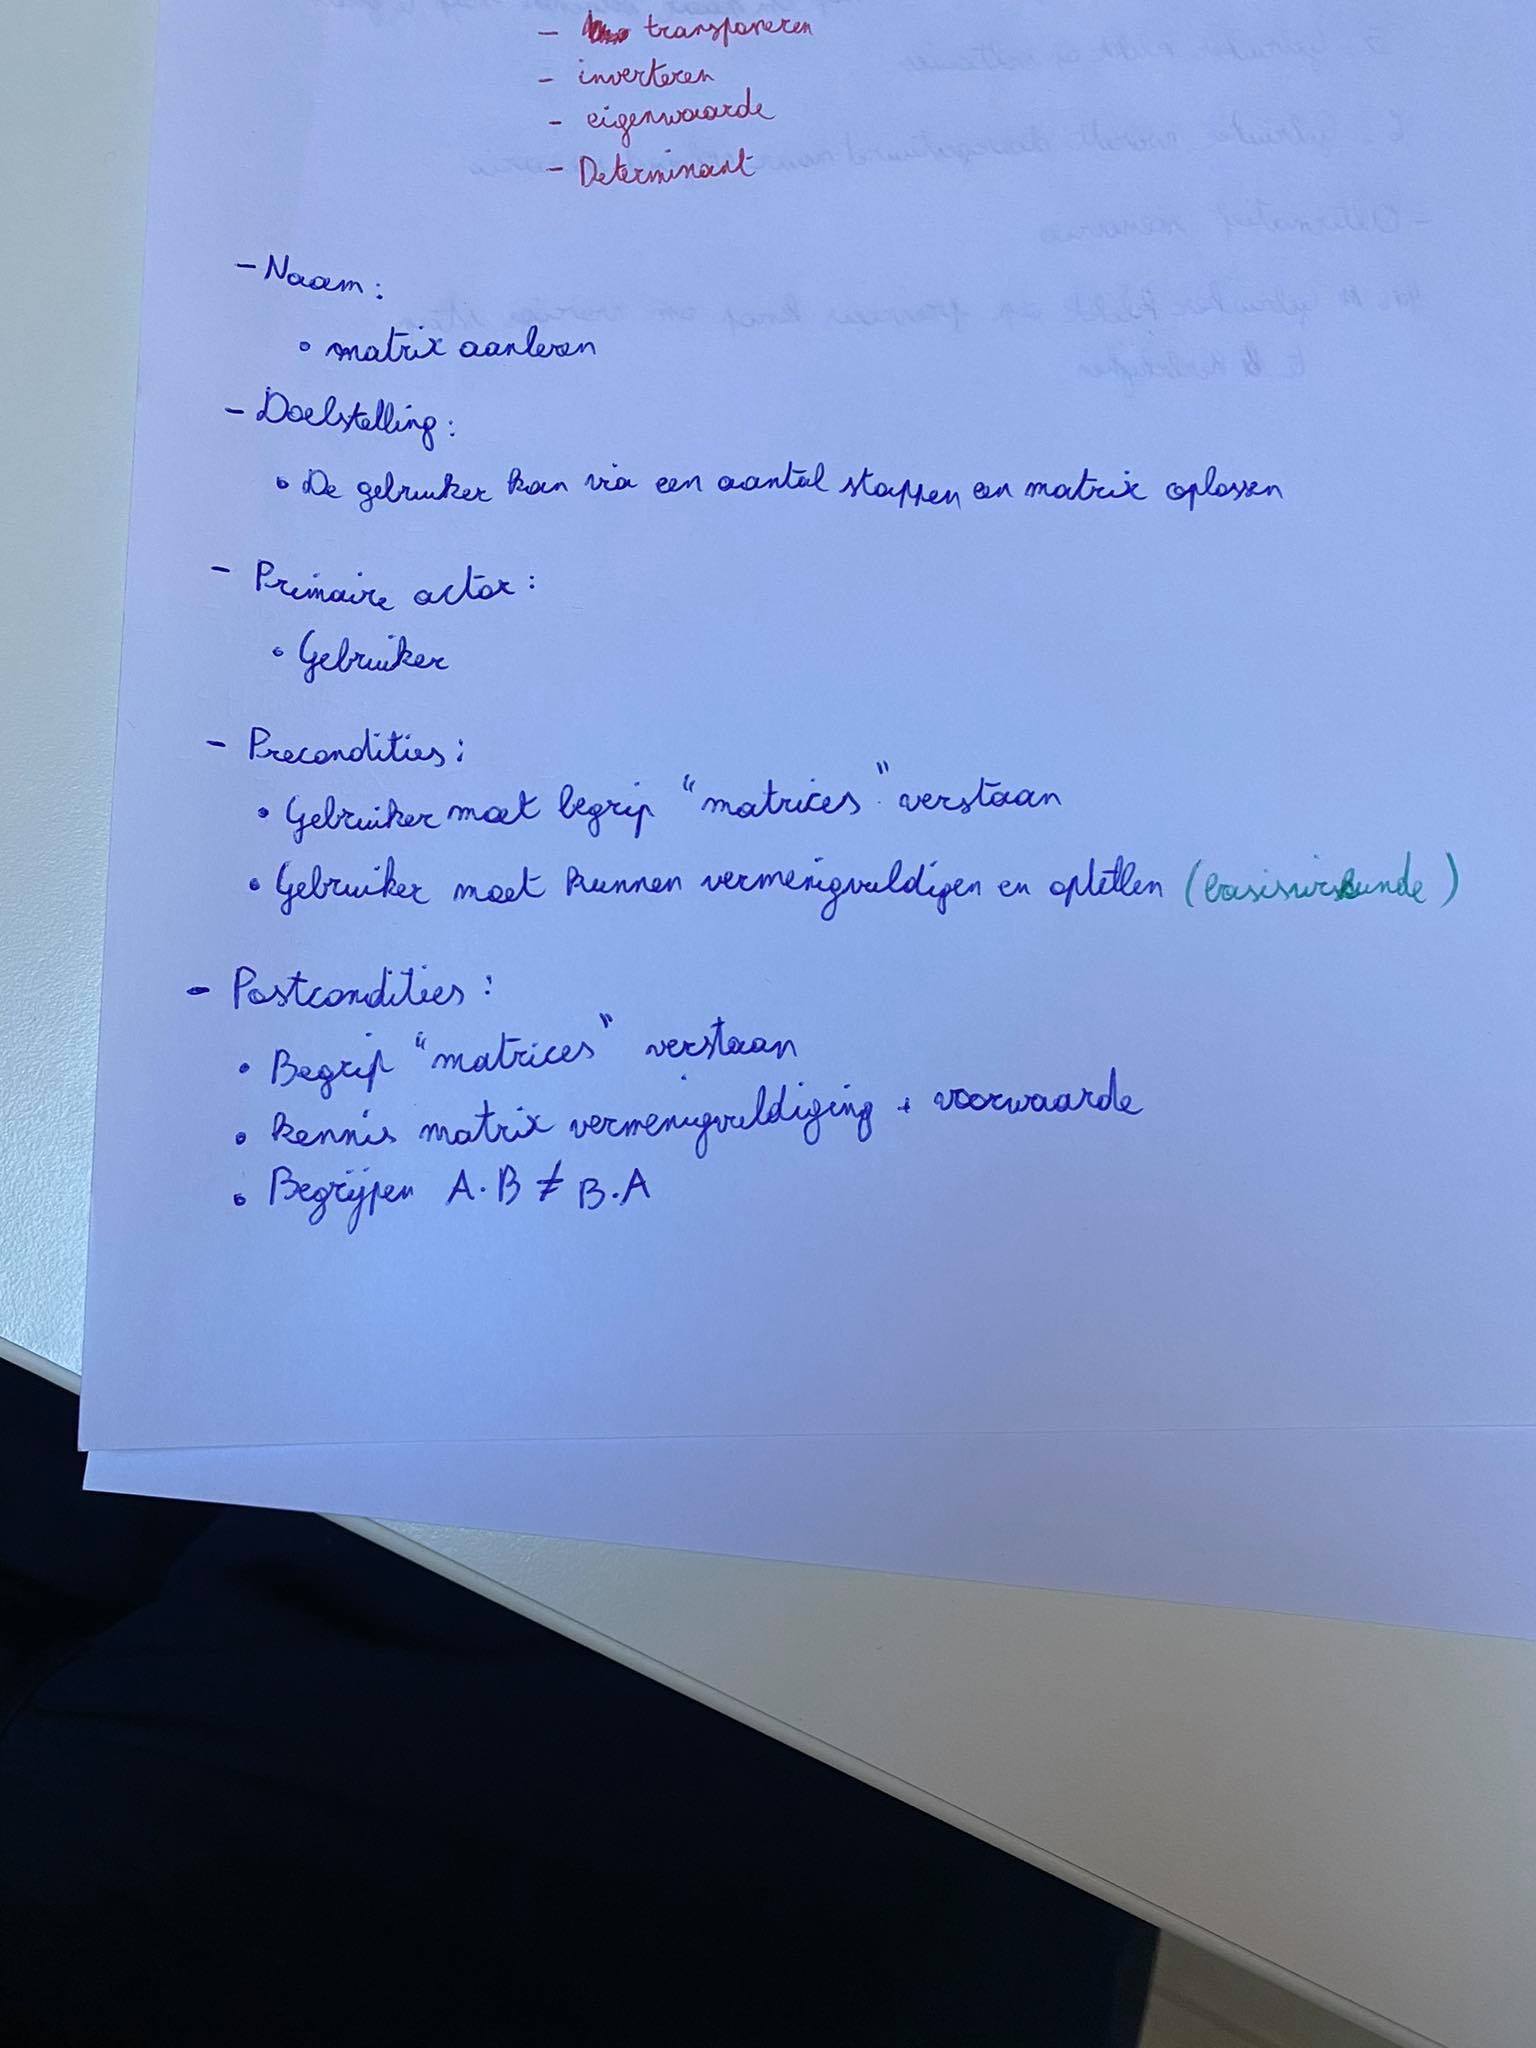 - transponeren
- inverteren
- eigenwaarde
- Determinant
- Naam:
• matrix aanleren
- Doelstelling:
• De gebruiker kan via een aantal stappen een matrix oplossen
- Primaire actor:
• Gebruiker
- Precondities:
• Gebruiker moet begrip "matrices" verstaan
• Gebruiker moet kunnen vermenigvuldigen en optellen (basiswiskunde)
- Postcondities:
• Begrip "matrices" verstaan
• kennis matrix vermenigvuldiging + voorwaarde
• Begrijpen A.B ≠ B.A